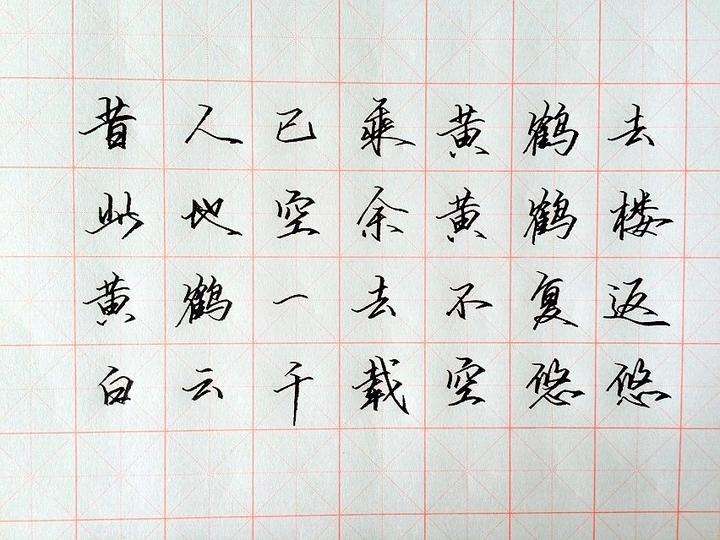 昔人已乘黄鹤去
此地空余黄鹤楼
黄鹤一去不复返
白云千载空悠悠